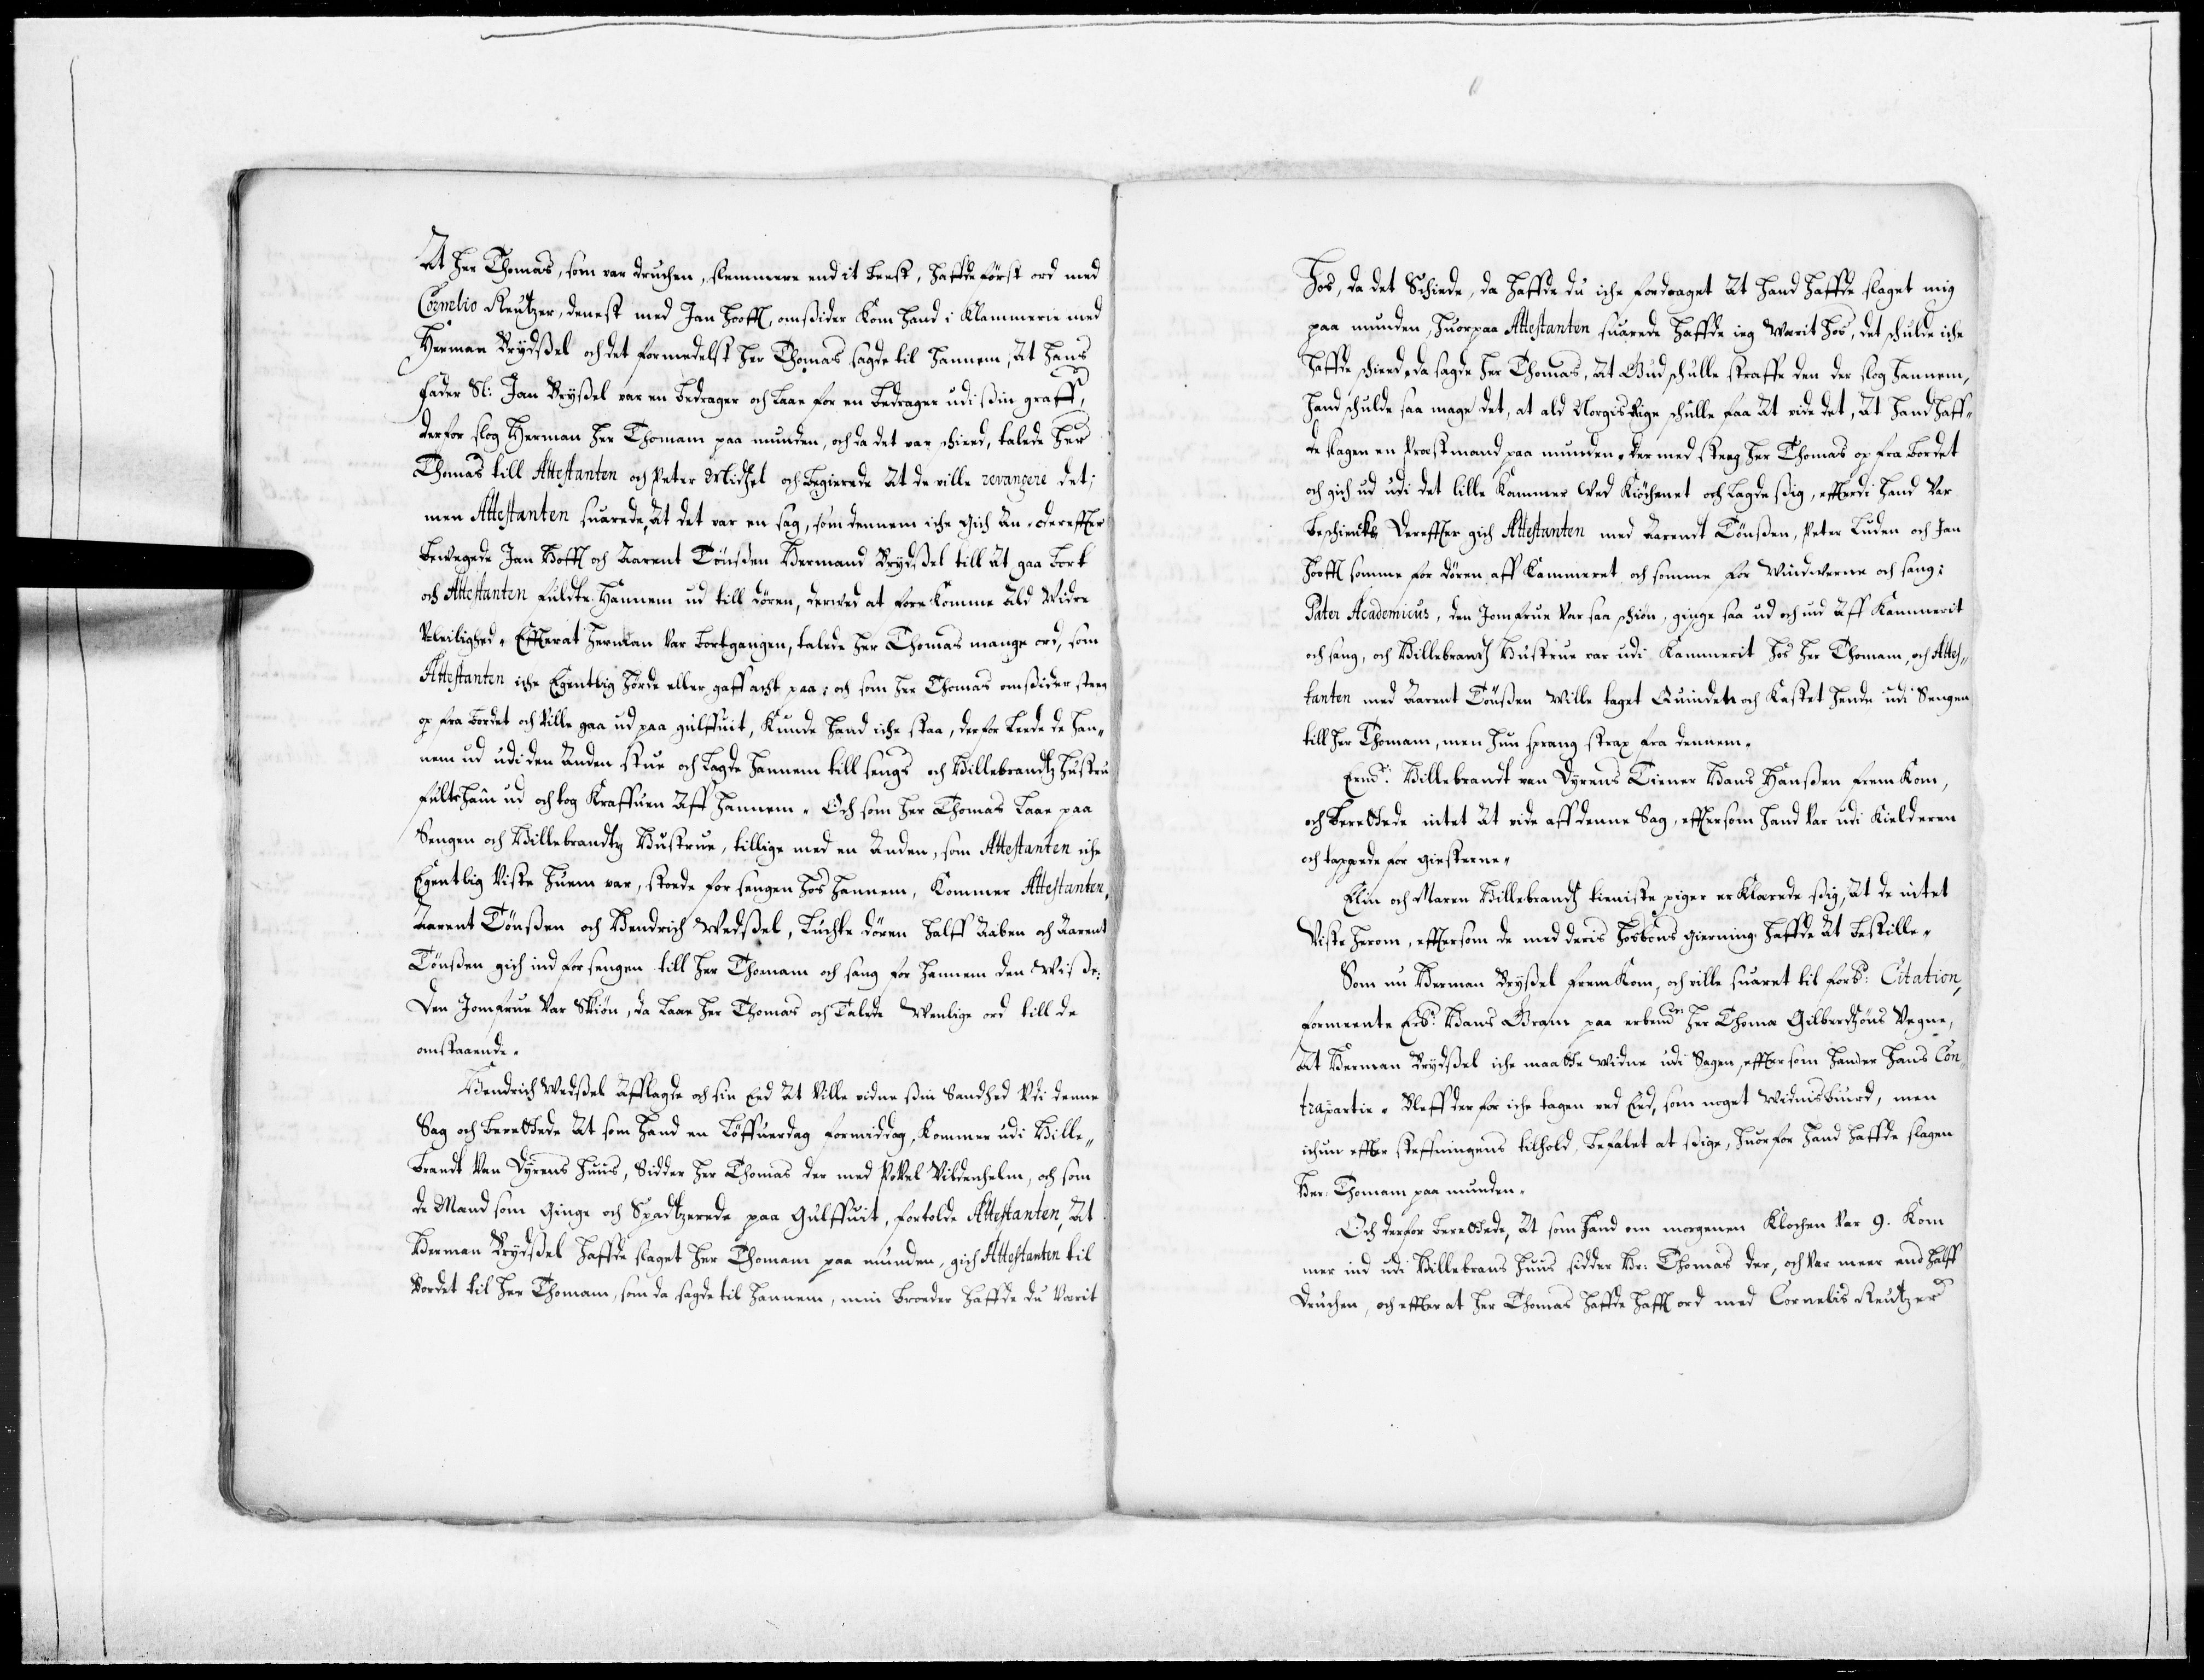 At her Thomas, som var druchen, slemmere end it beest, haffde først ord med
Cornelio Reutzer, dernest med Jan Hooff, omsider kom hand i klammerie med
Herman Brydßel och det formedelst her Thomas sagde til hannem, at hans
fader Sl: Jan Bryßel var en bedrager och laae for en bedrager udi ßin graff,
derfor slog Herman her Thomam paa munden, och da det var schied, talede her
Thomas till Attestanten och Peter Michel och begierede at de ville revangere det;
men Attestanten suarede, at det var en sag, som dennem iche gich an. Dereffter
bevegede Jan Hoff och Aarent Tönßen Hermand Brydßel till at gaa bort
och Attestanten fuldte hannem ud till dören, derved at forekomme ald vidre
Uleilighed. Effterat Herman var bortgangen, talede her Thomas mange ord, som
Attestanten iche Egentlig hörde eller gaff acht paa; och som her Thomas omsider steeg
op fra bordet och ville gaa ud paa gulffuit, kunde hand iche staa, derfor leede de han„
nem ud udi den anden stue och lagde hannem till sengs och Hillebrandtz hustru
fulte ham ud och tog kraffuen aff hannem. Och som her Thomas laae paa
Sengen och Hillebrandtz Hustrue, tillige med en anden, som Attestanten iche
Egentlig viste huem var, stoede for sengen hos hannem, kommer Attestanten,
Aarent Tönßen och Hendrich Wedßel, luchte dören halff aaben och Aarent
Tönßen gich ind for sengen till her Thomam och sang for hannem den Wiße:
Den Jomfrue var Skiön, da laae her Thomas och talede venlige ord till de
omstaaende.
Hendrich Wedßel afflagde och sin Eed at ville vidne ßin Sandhed udi denne
Sag och berettede at som hand en Löffuerdag formiddag, kommer udi Hille„
brandt van Dyrens huus, Sidder her Thomas der med Povel Vildenhelm, och som
de Mænd som ginge och Spadtzerede paa Gulffuit, fortolde Attestanten, at
Herman Brydßel haffde slaget her Thomam paa munden, gich Attestanten til
Bordet til her Thomam, som da sagde til hannem, min broeder haffde du varit
hos, da det Schiede, da haffde du iche fordraget at hand haffde slaget mig
paa munden, huorpaa Attestanten suarede haffde ieg warit hos, det schulde iche
haffde schied, da sagde her Thomas, at Gud schulle straffe den der slog hannem,
hand schulde saa mage det, at ald Norgis Rige schulle faa at vide det, at hand haff„
de slagen en Prestmand paa munden, der med steeg her Thomas op fra bordet
och gich ud udi det lille Kammer ved Kiöchenet och lagde ßig, efftterdi hand var
beschiencht. Dereffter gich Attestanten med Aarendt Tönßen, Peter Luden och Jan
Hooff somme for dören aff Kammeret och somme for vindverne och sang:
Pater Academicus, den Jomfrue var saa schiön, ginge saa ud och ind aff Kammerit
och sang, och Hillebrandtz Hustrue var udi Kammerit hos her Thomam, och Attes„
tanten med Aarent Tönßen ville taget Quinden och kastet hende udi Sengen
till her Thomam, men hun sprang strax fra dennem.
Hillebrandt van Dyrens Tiener Hans Hanßen frem kom,
och berettede intet at vide aff denne Sag, efftersom hand var udi Kielderen
och tappede for giesterne.
Elin och Maren Hillebrandtz tieniste piger erklærede ßig, at de intet
viste herom, efftersom de med deris hosbonds gierning haffde at bestille.
Som nu Herman Bryßel frem kom, och ville suaret til forbe: Citation,
formeente Hans Gram paa her Thomæ Gilbertzöns Vegne,
at Herman Brydßel iche maatte vidne udi Sagen, efftersom hand er hans Con„
trapartie. Bleff derfor iche tagen ved Eed, som noget Vidnisbiurd, men
ichun effter steffningens tilhold, befalet at ßige, huorfor hand haffde slagen
Her: Thomam paa munden.
Och derfor berettede, at som hand om morgenen klochen var 9. kom
mer ind udi Hillebrans huus sidder Hr: Thomas der, och var meer end halff
Druchen, och effterat her Thomas haffde hafft ord med Cornelis Reutzer